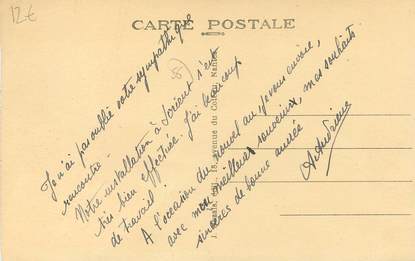 12€
CARTE POSTALE
58
Je n'ai pas oublié votre sympathique
rencontre.
Notre installation à Lorient s'est
très bien effectuée. J'ai beaucoup
de travail.
A l'occasion du nouvel an je vous envoie,
avec mon meilleur souvenir, mes souhaits
sincères de bonne année
édit. 18, avenue du Nantes